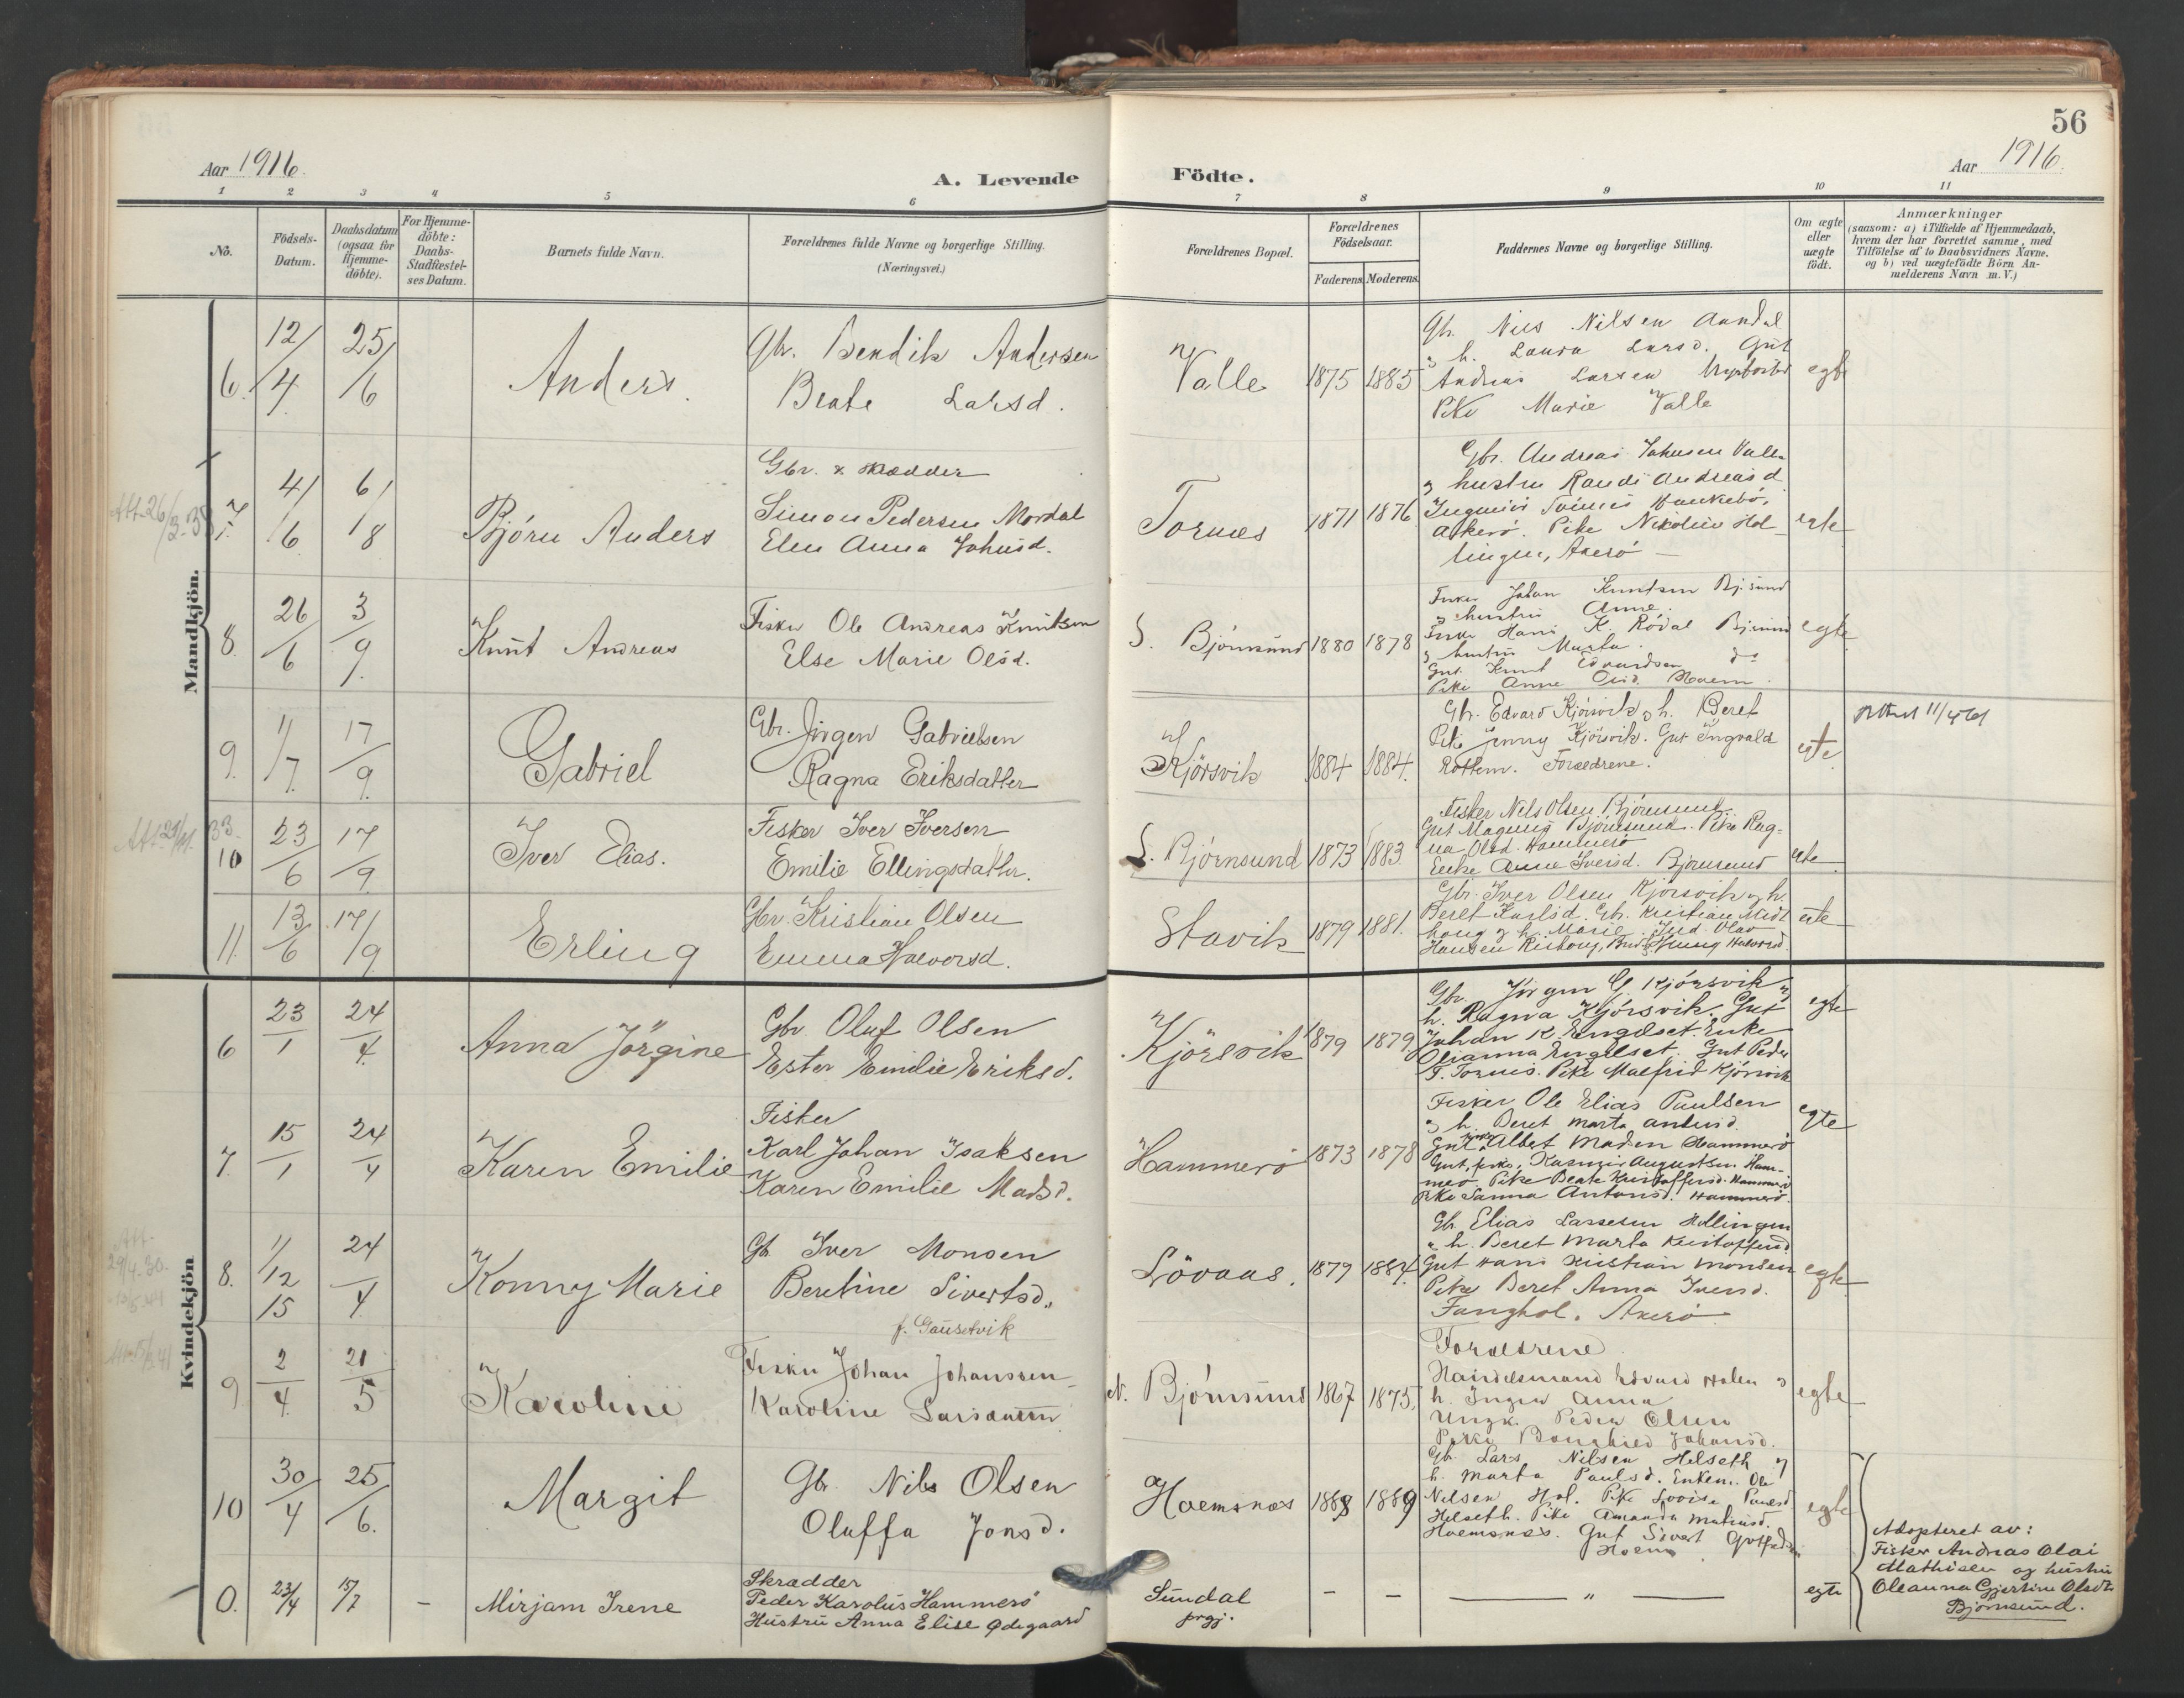 56
Aar 1916.
A. Levende Födte.
Aar 1916.
1 2 3 4 5 6 7 8 9 10 11
No.
Födsels-
Datum.
Daabsdatum
(ogsaa for
Hjemme-
döbte).
For Hjemme-
döbte:
Daabs-
Stadfæstel-
ses Datum.
Barnets fulde Navn.
Forældrenes fulde Navne og borgerlige Stilling.
(Næringsvei.)
Forældrenes Bopæl.
Forældrenes
Födselsaar.
Faderens. Moderens.
Faddernes Navne og borgerlige Stilling.
Om ægte
eller
uægte
födt.
Anmærkninger
(saasom: a) i Tilfælde af Hjemmedaab,
hvem der har forrettet samme, med
Tilföielse af to Daabsvidners Navne,
og b) ved uægtefödte Börn An-
melderens Navn m. V.)
Mandkjön.
6. 12/4. 25/6
Anders.
Gbr. Bendik Andersen
Beate Larsd.
Valle
1875 1885
Gbr. Nils Nilsen Aandal
og h. Laura Larsd. Gut
Andreas Larsen
Pike Marie Valle
egte
Att. 26/3-38
7. 4/6 6/8
Bjórn Anders
Gbr. & skrædder
Simon Pedersen Mordal
Elen Anna Johnsd.
Tornes
1871 1876
Gbr. Andreas Johnsen
og hustru Randi Andreasd
Akerö. Pike Nikoline Hol-
lingen, Akerö
egte
8. 26/6 3/9.
Knut Andreas
Fisker Ole Andreas Knutsen
Else Marie Olsd.
S. Björnsund
1880 1878
Fisker Johan Knutsen Bj.sund
og hustru Anne.
Fisker Hans K. Rödal Bj.sund
og hustru Marta.
Gut. Knut Edvardsen do
Pike Anne Olsd. Moen.
egte
9. 11/7. 17/9.
Gabriel
Gbr. Jörgen Gabrielsen
Ragna Eriksdatter
Kjörsvik
1884 1884.
Gbr. Edvard Kjörsvik og h. Beret
Pike Jenny Kjörsvik. Gut Ingvald
Rottem. Forældrene.
egte
Attest 11/4 61
10 23/6 17/9.
Iver Elias.
Fisker Iver Iversen
Emilie Ellingsdatter.
S. Björnsund
1873 1883.
Fisker Nils Olsen Björnsund
Gut Magnus Björnsund. Pike Rag-
na Olsd. Hammerö
Enke Anne Iversd. Björnsund
egte
11. 13/6 17/9
Erling
Gbr. Kristian Olsen
Emma Halvorsd.
Stavik
1879 1881.
Gbr. Iver Olsen Kjörsvik og h.
Beret Karlsd. Gbr. Kristian Midt
haug og h. Marie. Olav
Hansen
egte
Kvindekjön
6 23/1 24/4.
Anna Jörgine
Gbr. Oluf Olsen
Ester Emilie Eriksd.
Kjörsvik
1879 1879
Gbr. Jörgen G. Kjörsvik og
h. Ragna Kjörsvik. Gut
Johan K Engelset. Enke
Olianna Engelset. Gut Peder
T. Tornes. Pike Malfrid Kjörsvik
egte
7. 15/1 24/4
Karen Emilie
Fisker
Karl Johan Isaksen
Karen Emilie Madsd.
Hammerö
1873 1878
Fisker Ole Elias Paulsen
og h. Beret Marta Antonsd.
Gut Albet Madsen Hammerö
Gut, fisker, Kasper Augustsen. Ham-
merö. Pike Beate Kristoffersd. Hammerö
Pike Sanna Antonsd. Hammerö.
egte
8. 11/12 15 24/4.
Konny Marie
Gb Iver Monsen
Beretine Sivertsd.
f. Gausetvik
Lövaas.
1879 1884.
Gbr. Elias Larsesen Hollingen
og h. Beret Marta Kristoffersd.
Gut Hans Kristian Monsen
Pike Beret Anna Iversd.
Fanghol. Akerö
egte
9. 2/4. 21/5
Karoline
Fisker Johan Johanssen
Karoline Larsdatter
N. Björnsund
1867 1875.
Forældrene
Handelsmand Edvard Halen og
h. Inger Anna
Ungk. Peder Olsen
Pike Borghild Johansd.
egte
10 30/4 25/6.
Margit
Gbr. Nils Olsen
Oluffa Jonsd.
Hoemsnæs
1868 1869
Gbr. Lars Nilsen Helseth og
h. Marta Paulsd. Enkem. Ole
Nilsen Hol. Pike Lovise Paulsd.
Helseth. Pike Amanda
Hoemsnæs. Gut Sivert
Hoem
egte
0. 23/4 15/7 -
Mirjam Irene
Skrædder
Peder Karolus Hammerö
Hustru Anna Elise Ødegaard
Sundal
prgj.
- -
— „ —
egte
Adopteret av:
Fisker Andreas Olai
Mathisen og hustru
Oleanna Gjertine Olsdtr
Björnsund.